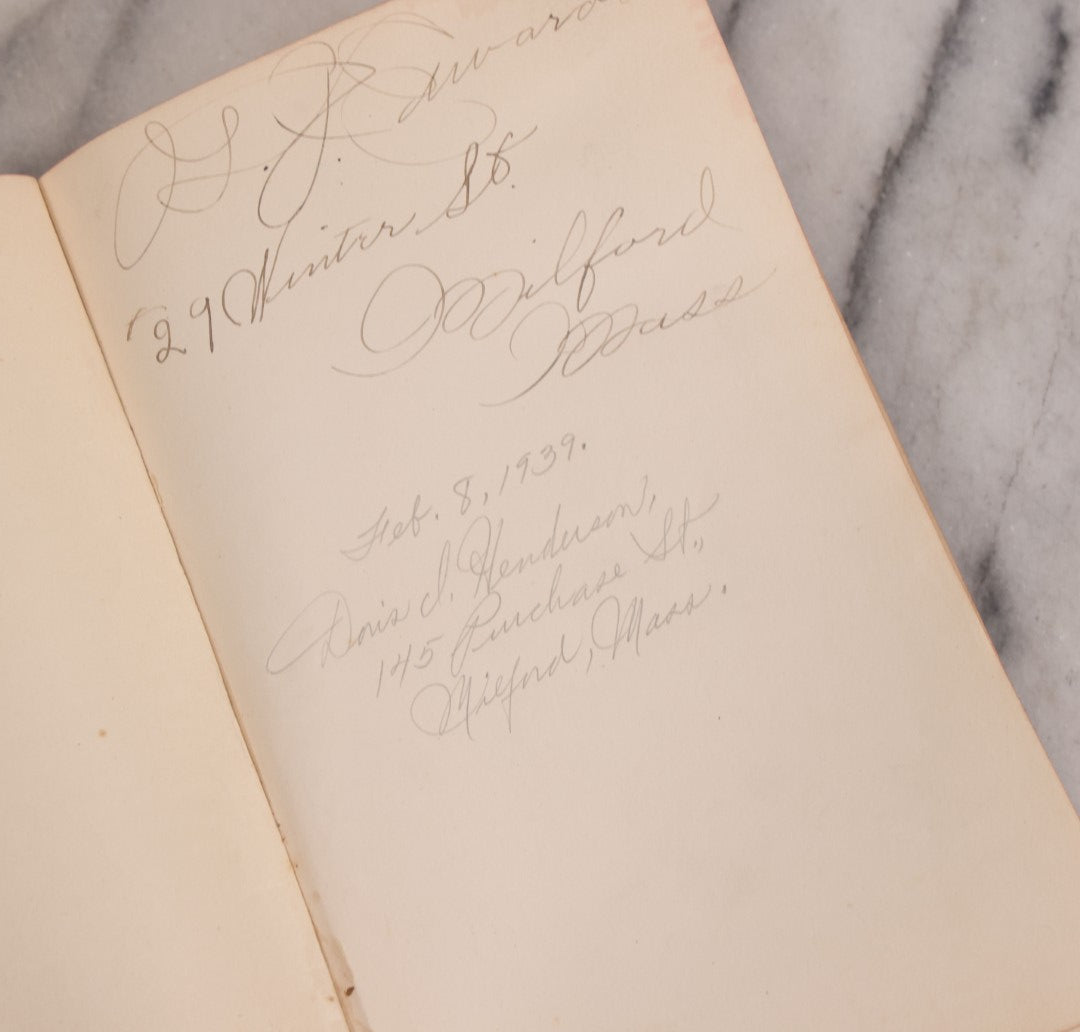 G. J. Edwards
29 Winter St.
Milford
Mass
Feb. 8, 1939.
Doris I. Henderson,
145 Purchase St.,
Milford, Mass.